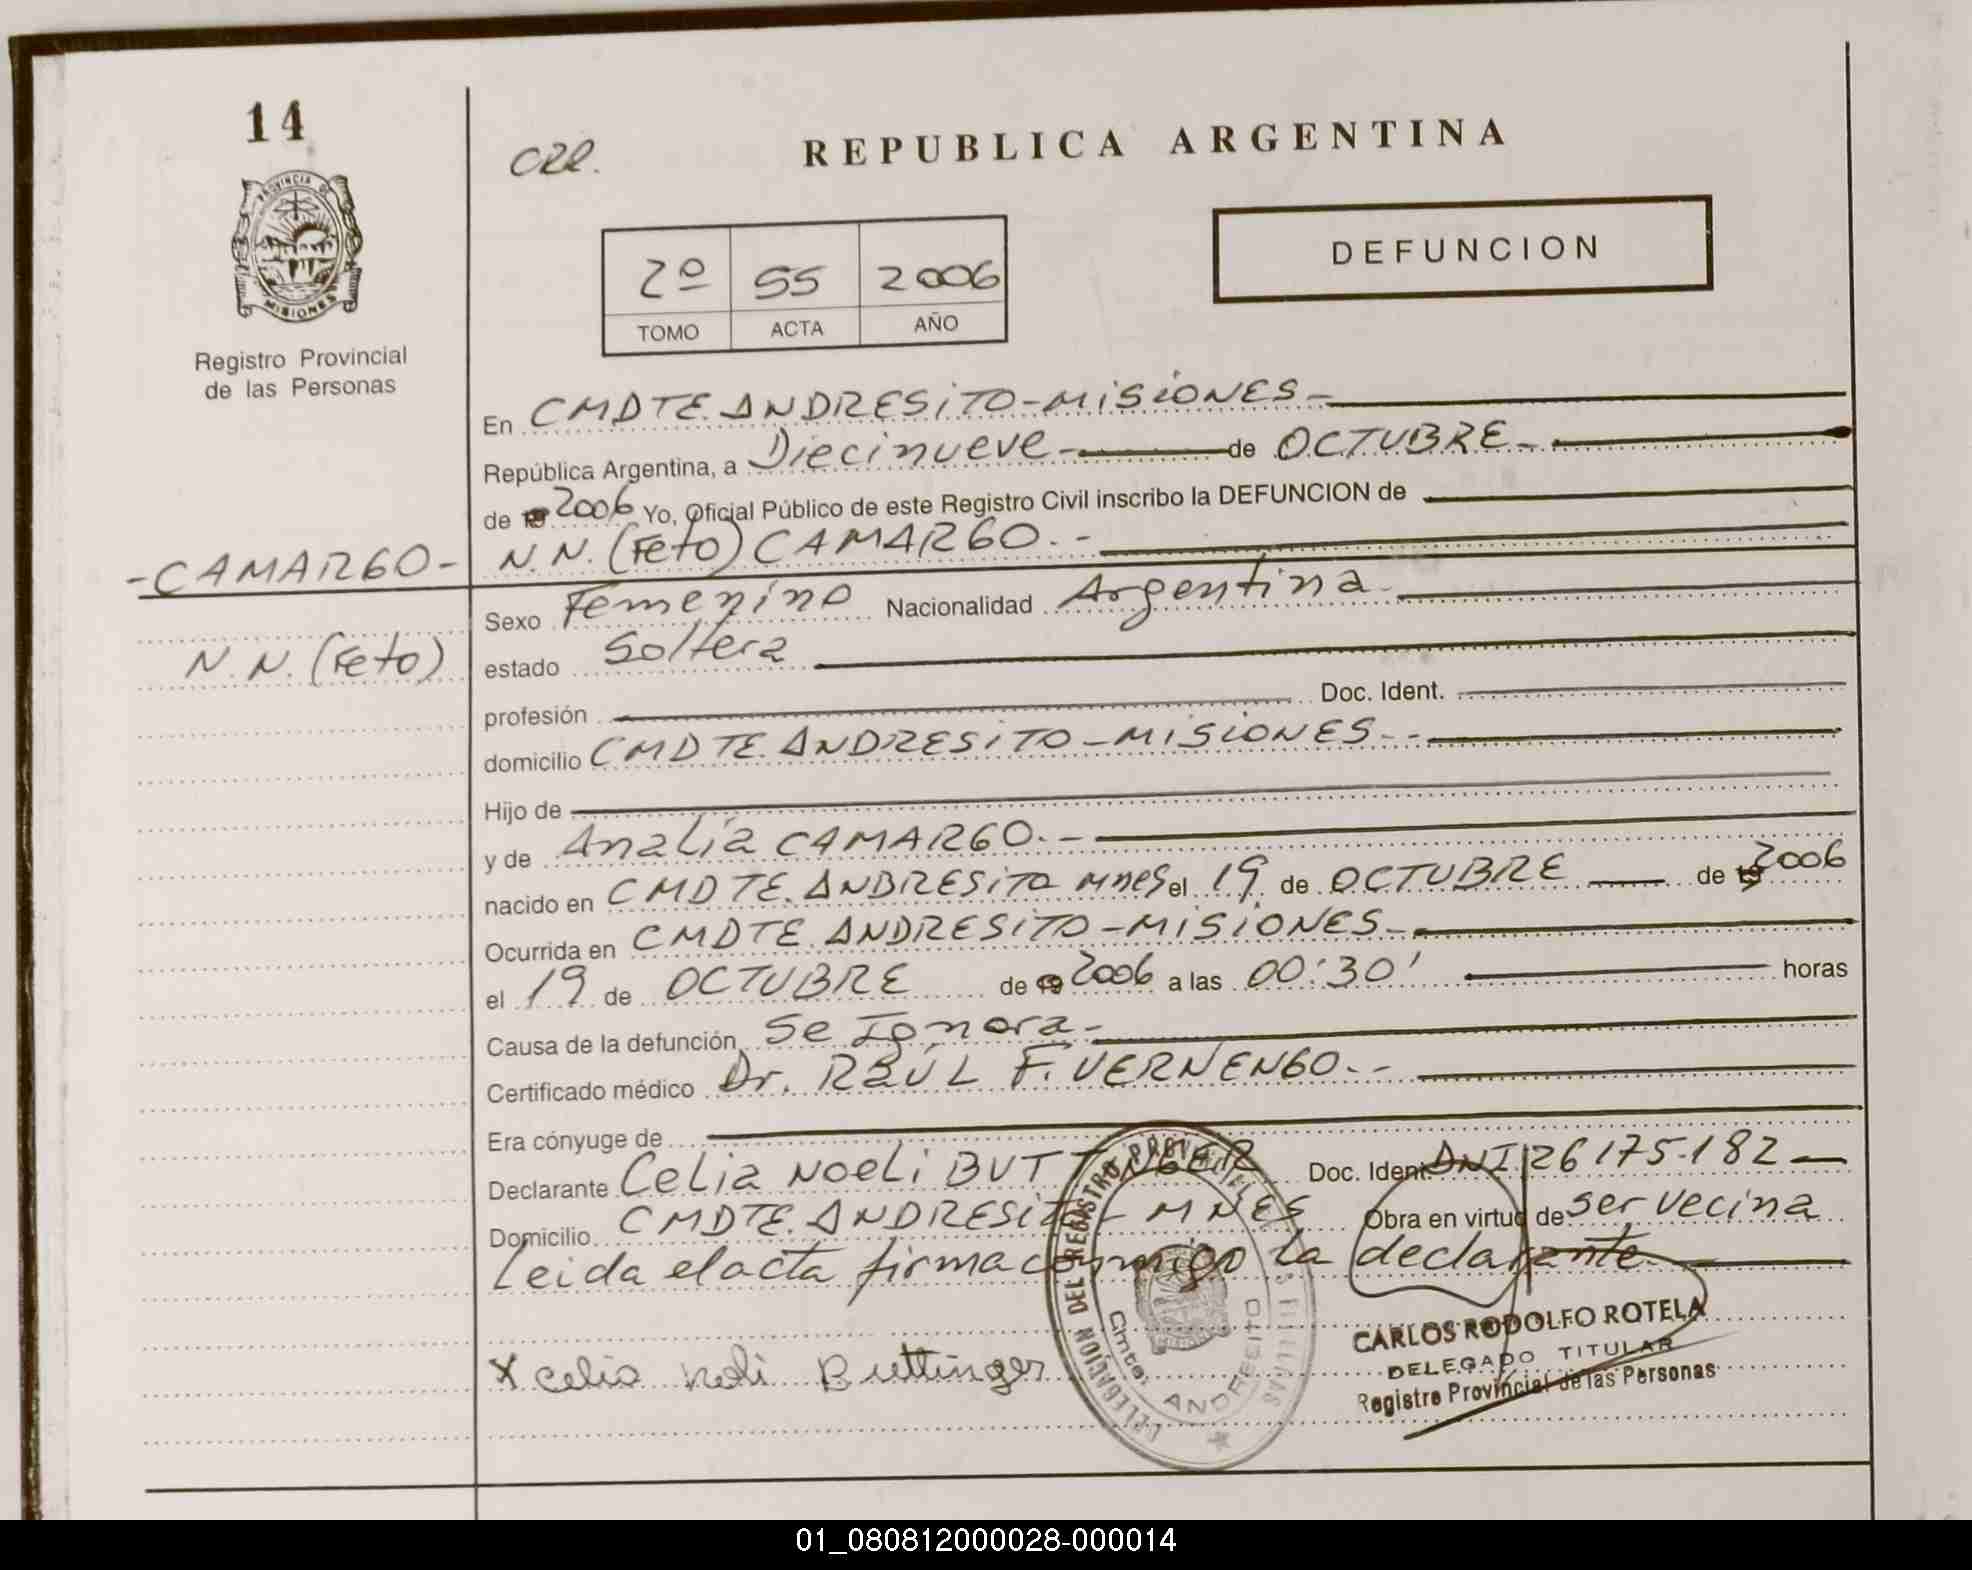 14
PROVINCIA DE
MISIONES
Registro Provincial
de las Personas
REPUBLICA ARGENTINA
2º 55 2006
TOMO ACTA AÑO
DEFUNCION
En CMDTE. ANDRESITO - MISIONES -
República Argentina, a Diecinueve - de OCTUBRE -
de 19 2006 Yo, Oficial Público de este Registro Civil inscribo la DEFUNCION de
- CAMARGO - N.N. (Feto) CAMARGO. -
Sexo Femenino Nacionalidad Argentina -
N.N. (Feto)
estado Soltera
profesión Doc. Ident.
domicilio CMDTE. ANDRESITO - MISIONES - -
Hijo de
y de Analía CAMARGO. -
nacido en CMDTE. ANDRESITO Mnes el 19 de OCTUBRE de 19 2006
Ocurrida en CMDTE. ANDRESITO - MISIONES -
el 19 de OCTUBRE de 19 2006 a las 00:30' horas
Causa de la defunción Se Ignora -
Certificado médico Dr. RAÚL F. VERNENGO. -
Era cónyuge de
Declarante Celia Noeli BUTTINGER Doc. Ident. DNI 26 175.182
Domicilio CMDTE. ANDRESITO - MNES Obra en virtud de ser vecina
Leida el acta firma conmigo la declarante
x Celia Noli Buttinger
DELEGACION DEL REGISTRO PROVINCIAL
Cmte. ANDRECITO
CARLOS RODOLFO ROTELA
DELEGADO TITULAR
Registro Provincial de las Personas
01_080812000028-000014